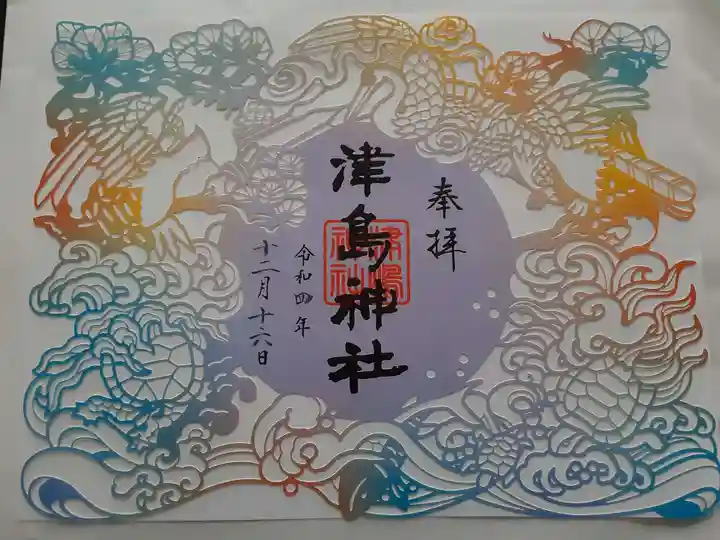 奉拝
津島神社
津島
神社
令和四年
十二月十六日